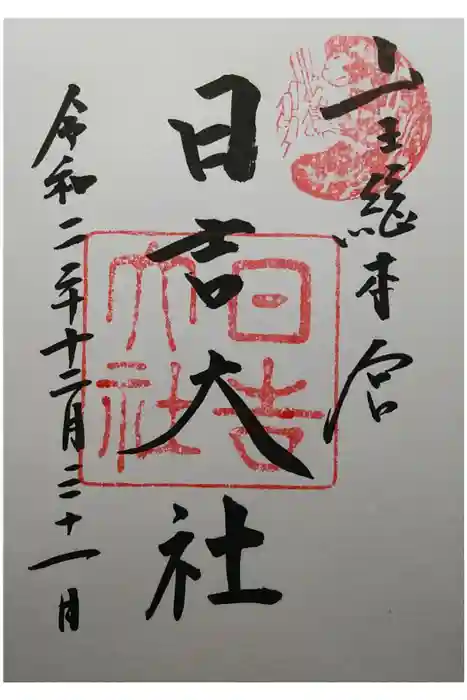 山王総本宮
日吉大社
令和二年十二月二十一日
日吉
大社